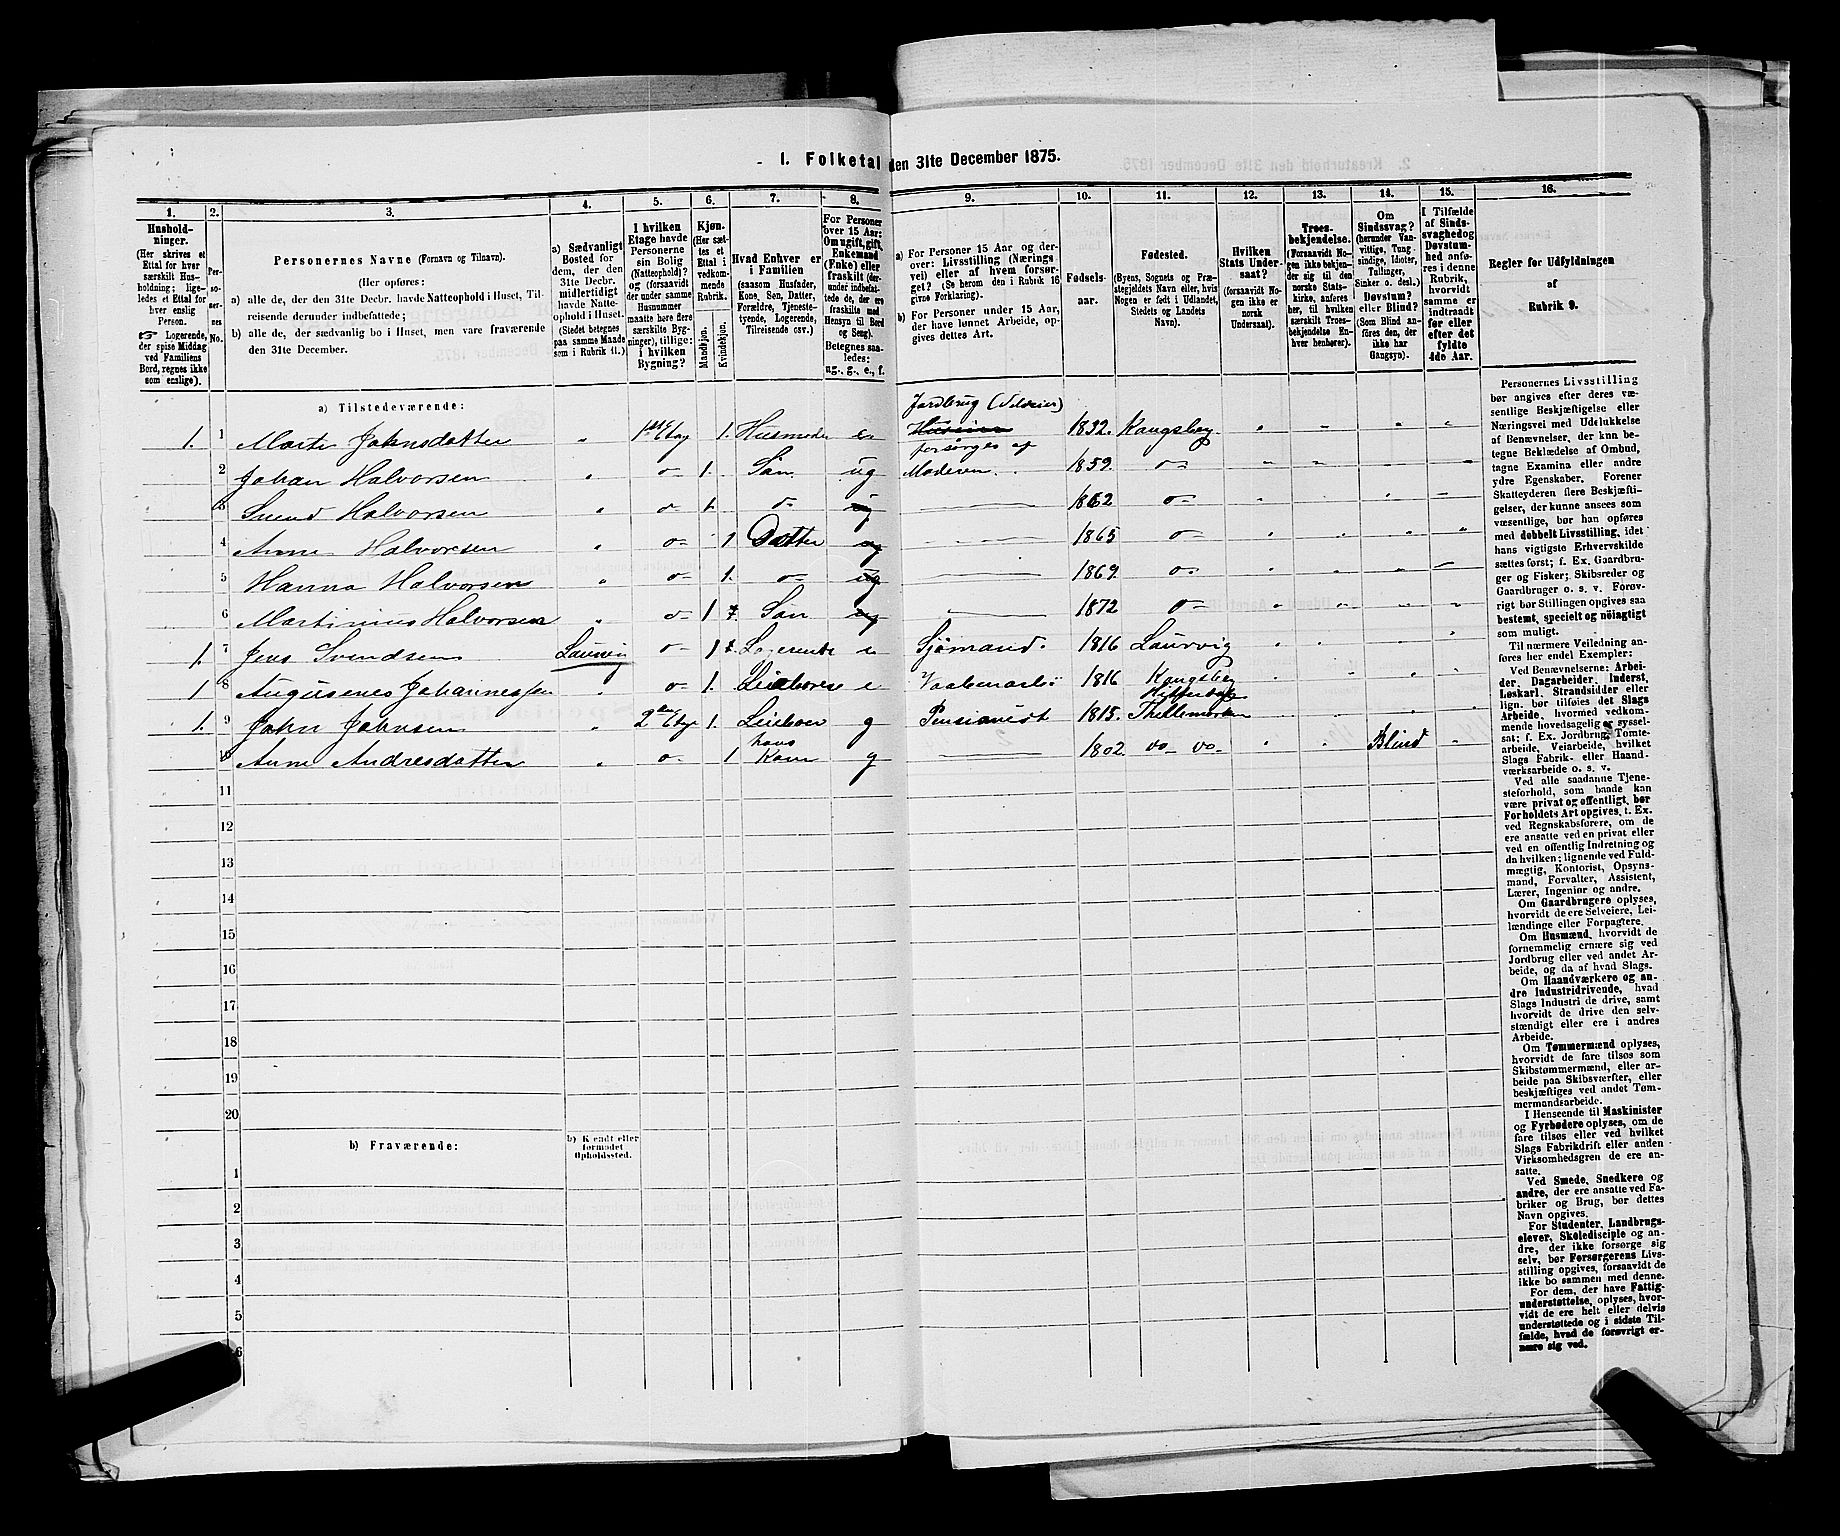 1. Folketal den 31te December 1875.
1. 2. 3. 4. 5. 6. 7. 8. 9. 10. 11. 12. 13. 14. 15. 16.
Hushold-
ninger.
(Her skrives et
Ettal for hver
særskilt Hus-
holdning; lige-
ledes et Ettal for
hver enslig
Person.
☞ Logerende,
der spise Middag
ved Familiens
Bord, regnes ikke
som enslige).
Per-
so-
ner-
nes
No.
Personernes Navne (Fornavn og Tilnavn).
(Her opføres:
a) alle de, der den 31te Decbr. havde Natteophold i Huset, Til-
reisende derunder indbefattede;
b) alle de, der sædvanlig bo i Huset, men vare fraværende
den 31te December.
a) Sædvanligt
Bosted for
dem, der den
31te Decbr.
midlertidigt
havde Natte-
ophold i Huset.
(Stedet betegnes
paa samme Maade
som i Rubrik 11.)
I hvilken
Etage havde
Personerne
sin Bolig
(Natteophold)?
og (forsaavidt
der under samme
Husnummer
maatte høre flere
særskilte Byg-
ninger), tillige:
i hvilken
Bygning?
Kjøn.
(Her sæt-
tes et
Ettal i
vedkom-
mende
Rubrik.
Mandkjøn.
Kvindekjøn.
Hvad Enhver er
i Familien
(saasom Husfader,
Kone, Søn, Datter,
Forældre, Tjeneste-
tyende, Logerende,
Tilreisende osv.)
For Personer
over 15 Aar:
Om ugift, gift,
Enkemand
(Enke) eller
fraskilt (der-
under indbefat-
tede de, der ere
fraskilte med
Hensyn til Bord
og Seng).
Betegnes saa-
ledes:
ug., g., e., f.
a) For Personer 15 Aar og der-
over: Livsstilling (Nærings-
vei) eller af hvem forsør-
get? (Se herom den i Rubrik 16
givne Forklaring).
b) For Personer under 15 Aar,
der have lønnet Arbeide, op-
gives dettes Art.
Fødsels-
aar.
Fødested.
(Byens, Sognets og Præ-
stegjeldets Navn eller, hvis
Nogen er født i Udlandet,
Stedets og Landets
Navn).
Hvilken
Stats Under-
saat?
(forsaavidt No-
gen ikke er
norsk
Undersaat).
Troes-
bekjendelse.
(Forsaavidt No-
gen ikke bekjen-
der sig til den
norske Stats-
kirke, anføres
her, til hvilken
særskilt Troes-
bekjendelse En-
hver henhører).
Om
Sindssvag?
(herunder Van-
vittige, Tung-
sindige, Idioter,
Tullinger,
Sinker o. desl.)
Døvstum?
eller Blind?
(Som Blind an-
føres den, der
ikke har
Gangsyn).
I Tilfælde
af Sinds-
svaghed og
Døvstum-
hed anfø-
res i denne
Rubrik,
hvorvidt
samme er
indtraadt
før eller
efter det
fyldte
4de Aar.
Regler for Udfyldningen
af
Rubrik 9.
a) Tilstedeværende:
Jordbrug (Selveier)
1. 1 Marte Johnsdatter " 1ste Etag 1. Husmoder e. forsørges af 1832. Kongsberg. " " " "
2 Johan Halvorsen " o- 1. Søn. ug Moderen. 1859. o- " " " "
3 Svend Halvorsen " o- 1. o- ug 1862 o- " " " "
4 Anne Halvorsen " o- 1 Datter ug 1865 o- " " " "
5 Hanna Halvorsen " o- 1. o- ug 1869. o- " " " "
6 Martinius Halvorsen " o- 1 Søn ug 1872 o- " " " "
1. 7 Jens Svendsen Laurvig o- 1 Logerende e Sjømand. 1816 Laurvig " " "
1 8 Augusenes Johannessen " o- 1. e 1816 Kongsberg " " " "
1. 9 John Johnsen " 2den Etage 1. g Pensionist 1815. Thellemarken " " " "
10 Anne Andresdatter " o- 1 hans Kone g 1802. do- do- " " Blind "
11
12
13
14
15
16
17
18
19
20
b) Fraværende:
b) Kjendt eller
formodet
Opholdssted.
1
2
3
4
5
6
Personernes Livsstilling
bør angives efter deres væ-
sentlige Beskjæftigelse eller
Næringsvei med Udelukkelse
af Benævnelser, der kun be-
tegne Beklædelse af Ombud,
tagne Examina eller andre
ydre Egenskaber. Forener
Skatteyderen flere Beskjæfti-
gelser, der kunne ansees som
væsentlige, bør han opføres
med dobbelt Livsstilling, idet
hans vigtigste Erhvervskilde
sættes først; f. Ex. Gaardbru-
ger og Fisker; Skibsreder og
Gaardbruger o. s. v. Forøv-
rigt bør Stillingen opgives saa
bestemt, specielt og nøiagtigt
som muligt.
Til nærmere Veiledning an-
føres her endel Exempler:
Ved Benævnelserne: Arbei-
der, Dagarbeider, Inderst,
Løskarl, Strandsidder eller
lign. bør tilføies det Slags
Arbeide, hvormed vedkom-
mende hovedsagelig er syssel-
sat; f. Ex. Jordbrug, Tomte-
arbeide, Veiarbeide, hvilket
Slags Fabrik- eller Haand-
værksarbeide o. s. v.
Ved alle saadanne Tjene-
steforhold, som baade kan
være privat og offentligt, bør
Forholdets Art opgives, t. Ex.
ved Regnskabsførere, om de
ere ansatte ved en privat eller
ved en offentlig Indretning og
da hvilken; lignende ved Fuld-
mægtig, Kontorist, Opsyns-
mand, Forvalter, Assistent,
Lærer, Ingeniør og andre.
Om Gaardbrugere oplyses,
hvorvidt de ere Selveiere, Lei-
lændinge eller Forpagtere.
Om Husmænd, hvorvidt de
fornemmelig ernære sig ved
Jordbrug eller ved andet Ar-
beide, og da af hvad Slags.
Om Haandværkere og an-
dre Industridrivende, hvad
Slags Industri de drive, samt
hvorvidt de drive den selv-
stændigt eller ere i andres
Arbeide.
Om Tømmermænd oplyses,
hvorvidt de fare tilsøs som
Skibstømmermænd, eller ar-
beide paa Skibsværfter, eller
beskjæftiges ved andet Tøm-
mermandsarbeide.
I Henseende til Maskinister
og Fyrbødere oplyses, om de
fare tilsøs eller ved hvilket
Slags Fabrikdrift eller anden
Virksomhedsgren de ere an-
satte.
Ved Smede, Snedkere og
andre, der ere ansatte ved Fa-
briker og Brug, bør dettes
Navn opgives.
For Studenter, Landbrugs-
elever, Skoledisciple og an-
dre, der ikke forsørge sig
selv, bør Forsørgerens Livs-
stilling opgives, forsaavidt de
ikke bo sammen med denne.
For dem, der have Fattig-
understøttelse, oplyses, hvor-
vidt de ere helt eller delvis
understøttede og i sidste Til-
fælde, hvad de forøvrigt er-
nære sig ved.